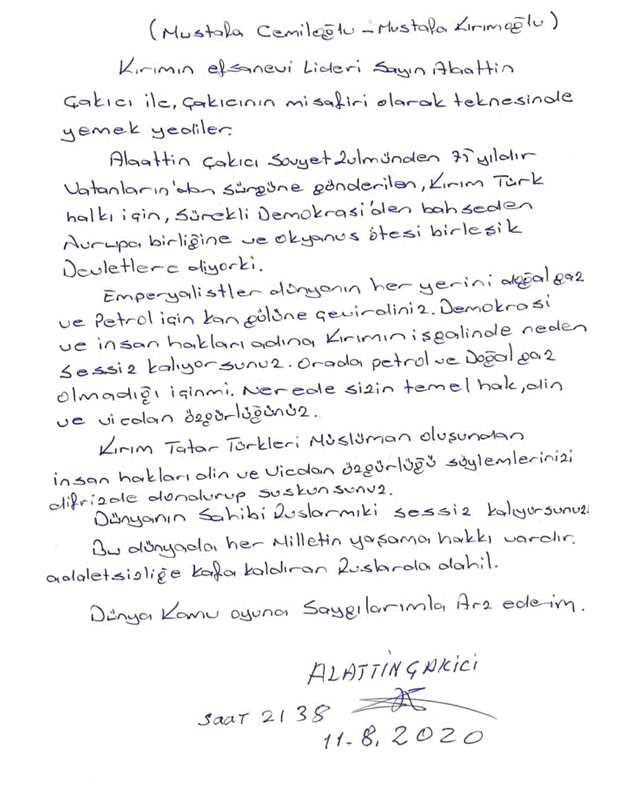 (Mustafa Cemiloğlu - Mustafa Kırımoğlu)
Kırımın efsanevi Lideri Sayın Alaattin
Çakıcı ile, Çakıcının misafiri olarak teknesinde
yemek yediler.
Alaattin Çakıcı Sovyet Zulmünden 75 yıldır
Vatanların'dan sürgüne gönderilen, Kırım Türk
halkı için, sürekli Demokrasi'den bahseden
Avrupa birliğine ve okyanus ötesi birleşik
Devletlere diyorki.
Emperyalistler dünyanın her yerini doğalgaz
ve Petrol için kan gölüne çevirdiniz. Demokrasi
ve insan hakları adına Kırımın işgalinde neden
sessiz kalıyorsunuz. Orada petrol ve Doğal gaz
olmadığı içinmi. Nerede sizin temel hak, din
ve vicdan özgürlüğünüz.
Kırım Tatar Türkleri Müslüman oluşundan
insan hakları din ve Vicdan özgürlüğü söylemlerinizi
difrizde dondurup suskunsunuz.
Dünyanın Sahibi Ruslarmıki sessiz kalıyorsunuz.
Bu dünyada her Milletin yaşama hakkı vardır.
adaletsizliğe kafa kaldıran Ruslarda dahil.
Dünya Kamu oyuna Saygılarımla Arz ederim.
ALATTİN ÇAKICI
SAAT 21 38
11.8.2020